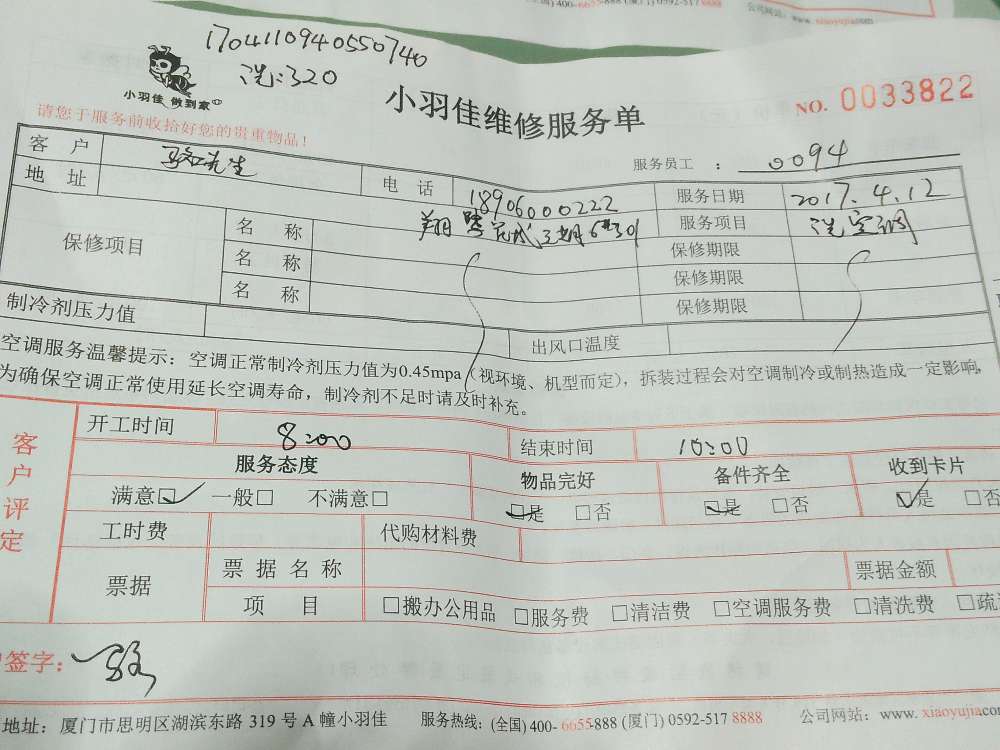 全国) 400-6655-888 (厦门) 0592-517 8888 公司网站: www. xiaoyujia.com
1704110940550740
洗:320
小羽佳 做到家
小羽佳维修服务单
NO. 0033822
请您于服务前收拾好您的贵重物品!
服务员工 : 0094
客 户 骆先生 电 话 18906000222 服务日期 2017.4.12
地 址 服务项目 洗空调
保修项目 名 称 保修期限
名 称 保修期限
名 称 保修期限
制冷剂压力值 出风口温度
空调服务温馨提示: 空调正常制冷剂压力值为0.45mpa (视环境、机型而定), 拆装过程会对空调制冷或制热造成一定影响,
为确保空调正常使用延长空调寿命, 制冷剂不足时请及时补充。
客户评定
开工时间 8:00 结束时间 10:00
服务态度 物品完好 备件齐全 收到卡片
满意☑ 一般□ 不满意□ ☑是 □否 ☑是 □否 ☑是 □否
工时费 代购材料费
票据 票 据 名 称 票据金额
项 目 □搬办公用品 □服务费 □清洁费 □空调服务费 □清洗费 □疏
签字: 骆
地址: 厦门市思明区湖滨东路 319 号 A 幢小羽佳 服务热线: (全国) 400- 6655-888 (厦门) 0592-517 8888 公司网站: www. xiaoyujia.com